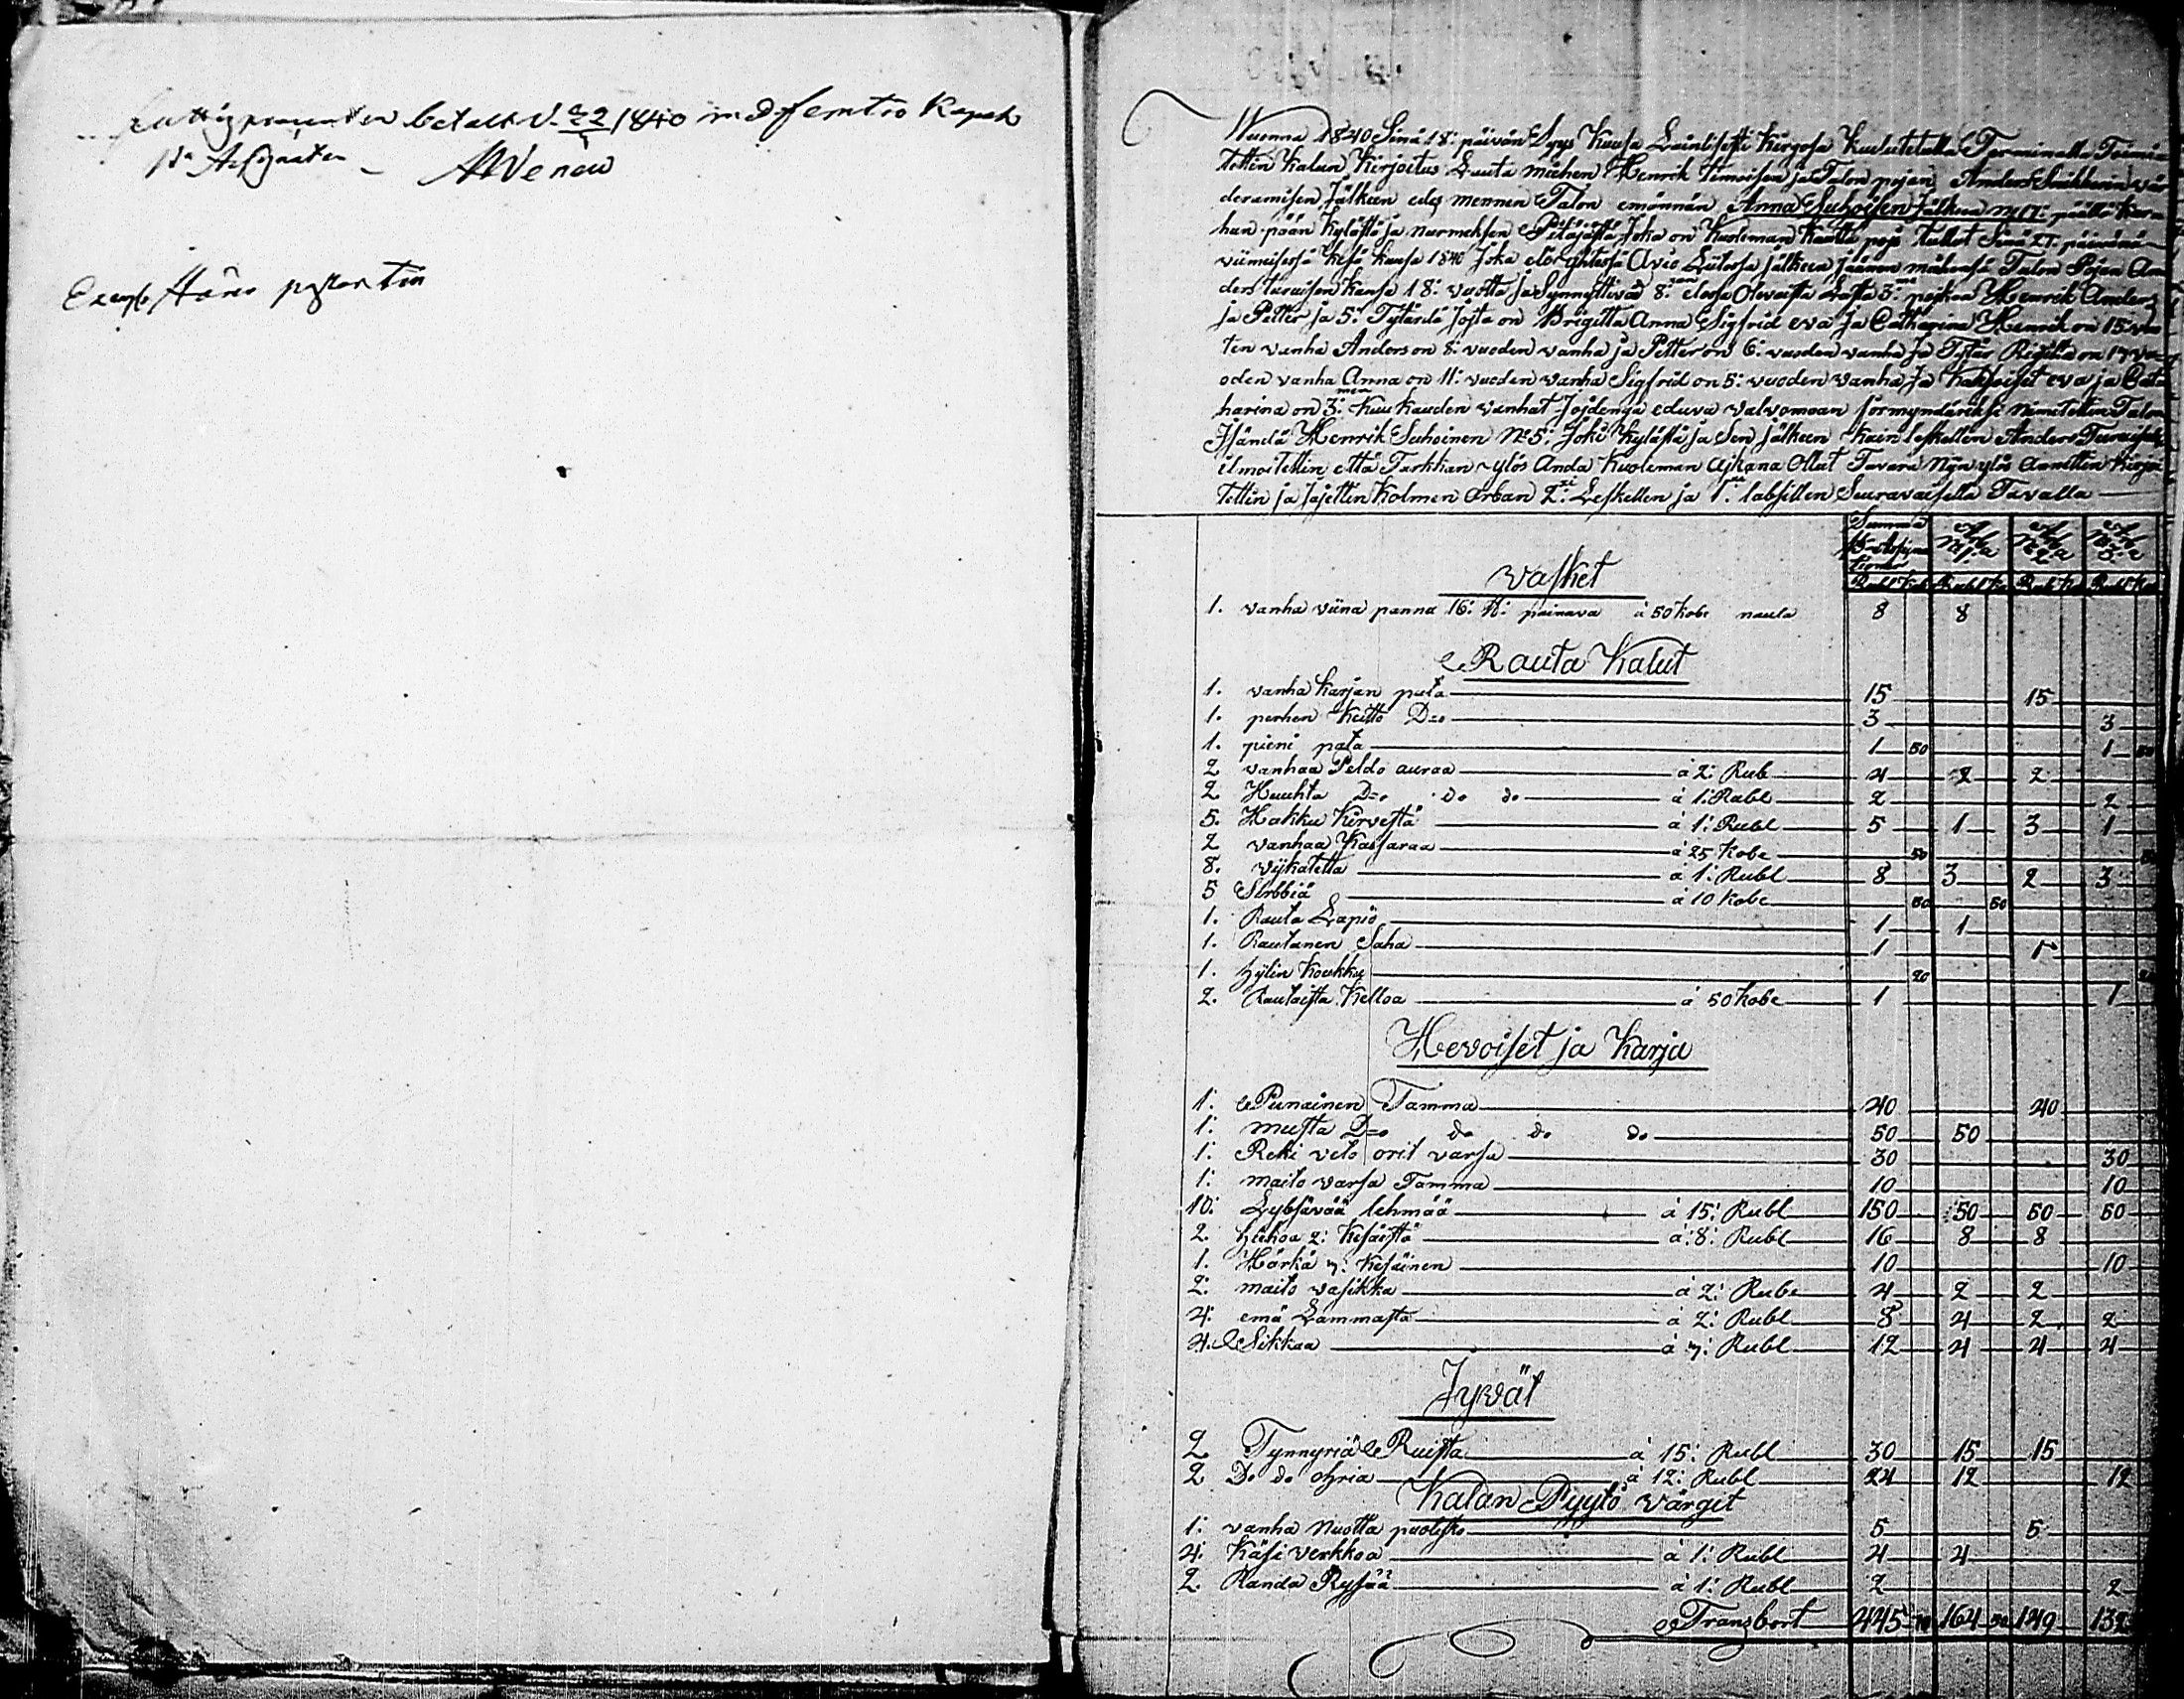 betalt d. 22/9 1840 med femtio Kopek
B:co Assignater
Wuonna 1840 Sinä 18: päivän Syys Kuusa Laillisesti Kirgosa Kuulutetulla Terminalla Toimi
tettin Kalun Kirjoitus Lauta miehen Henrik Timoisen ja Talon pojan Anders
deramisen Jälkeen edes mennen Talon emännän Anna Suhoisen Jälkeen No 17: päällä Kar
hun-pään Kylästä ja nurmeksen Pitäjästä Joka on Kuoleman Kautta pois tullut Sinä 27. päivänä
viimeisesä Kesä Kuusa 1840 Joka elos yhtessä Avio Liitosa jälkeen jäänen miehensä Talon Pojan An
ders turuisen Kansa 18: vuotta ja Synnyttivät 8: elosa Olevaista Lasta 3: poikaa Henrik Anders
ja Petter ja 5: Tytärdä Joista on Brigitta Anna Sigfrid eva ja Catharina Henrik on 15 vuo
ten vanha Anders on 8: vuoden vanha ja Petter on 6: vuoden vanha Ja Tytär Rigitta on 17 vu
oden vanha Anna on 11: vuoden vanha Sigfrid on 5: vuoden vanha Ja Kakxoiset eva ja Cat
harina on 3: Kuu Kauden vanhat Joidenga eduva valvomaan formyndäriksi nimitettin Talon
Isändä Henrik Suhoinen No 5: Joki Kylästä ja Sen jälkeen Kuin leskellen Anders Turuisel
ilmoitettin että Tarkkan ylös Anda Kuoleman ajkana Ollut Tavara Nijn ylös Annettin Kirjoi
tettin ja Jajettin Kolmen Arban 2:xi Leskellen ja 1: labsillen Seuravaisella Tavalla
Summa B:co Assignationer Arb No 1:a Arb No 2:a Arb No 3:a
Rubl Kob Rubl Ko Rub Ko Rub Ko
Vasket
1. vanha viina panna 16: ℔: painava à 50 Kobe naula 8 8
Rauta Kalut
1. vanha Karjan pata 15 15
1. perhen Keitto D:o 3 3
1. pieni pata 1 50 1 50
2 vanhaa Peldo auraa à 2: Rub 4 2 2
2. Huuhta D:o do do à 1: Rubl 2 2
5. Hakku Kirvestä à 1: Rubl 5 1 3 1
2 vanhaa Kassaraa à 25 Kobe 50 50
8. vijkatetta à 1: Rubl 8 3 2 3
5 Sirbbiä à 10 Kobe 50 50
1. Rauta Lapio 1 1
1. Rautanen Saha 1 1
1. hylin Koukku 20 20
2. Rautaista Kelloa à 50 Kobe 1 1
Hevoiset ja Karja
1: Punainen Tamma 40 40
1: musta D:o do do do 50 50
1: Reki veto orit varsa 30 30
1: maito varsa Tamma 10 10
10: Lybsävää lehmää à 15: Rubl 150 50 50 50
2. hiehoa 2: Kesäistä à 8: Rubl 16 8 8
1. Härkä 3: Kesäinen 10 10
2: maito vasikka à 2: Rube 4 2 2
4: emä Lammasta à 2: Rubl 8 4 2 2
4. Sikkaa à 3: Rubl 12 4 4 4
Jyvät
2 Tynnyriä Ruista à 15: Rubl 30 15 15
2 Do do ohria à 12: Rubl 24 12 12
Kalan Pyytö värget
1: vanha Nuotta puolisko 5 5
4: Käsi verkkoa à 1: Rubl 4 4
2. Randa Rysää à 1: Rubl 2 2
Transbort 445 70 164 50 149 132